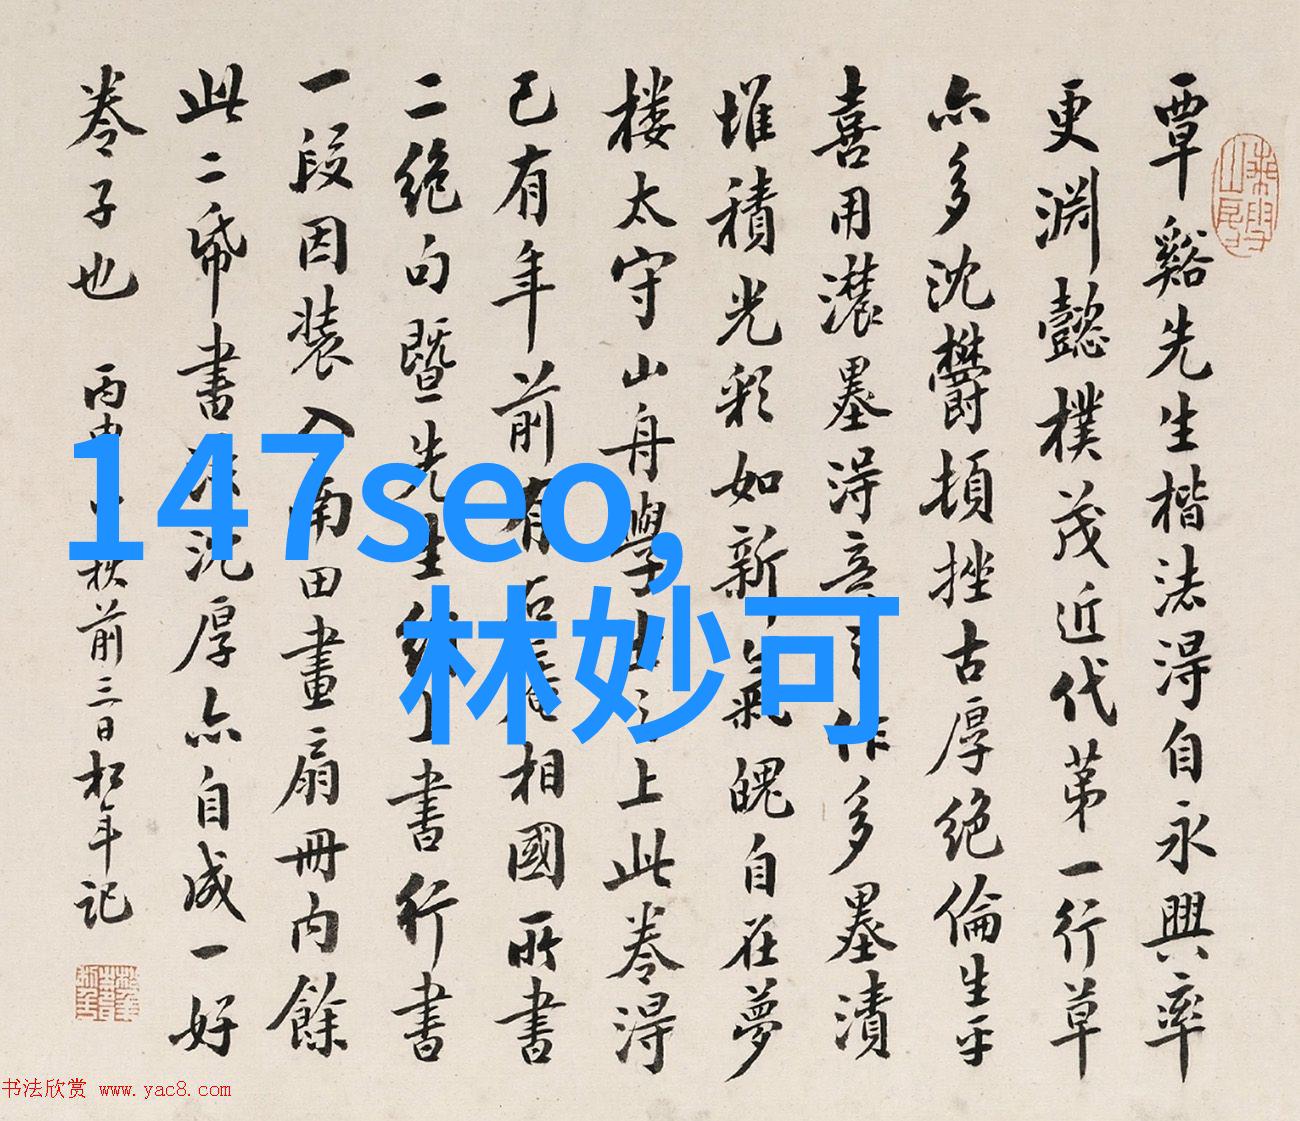 覃谿先生楷法得自永興率
更淵懿樸茂近代苐一行草
亦多沈欝頓挫古厚絶倫生平
喜用濃墨得意之作多墨漬
堆積光彩如新氣魄自在夢
楼太守山舟學士之上此卷得
已有年前有石菴相國所書
二絶句暨先生行書
一段因裝入南田畫扇冊内餘
此二帋書沈厚亦自成一好
卷子也
丙申秋前三日松年記
147seo,
林妙可
书法欣赏 www.yac8.com